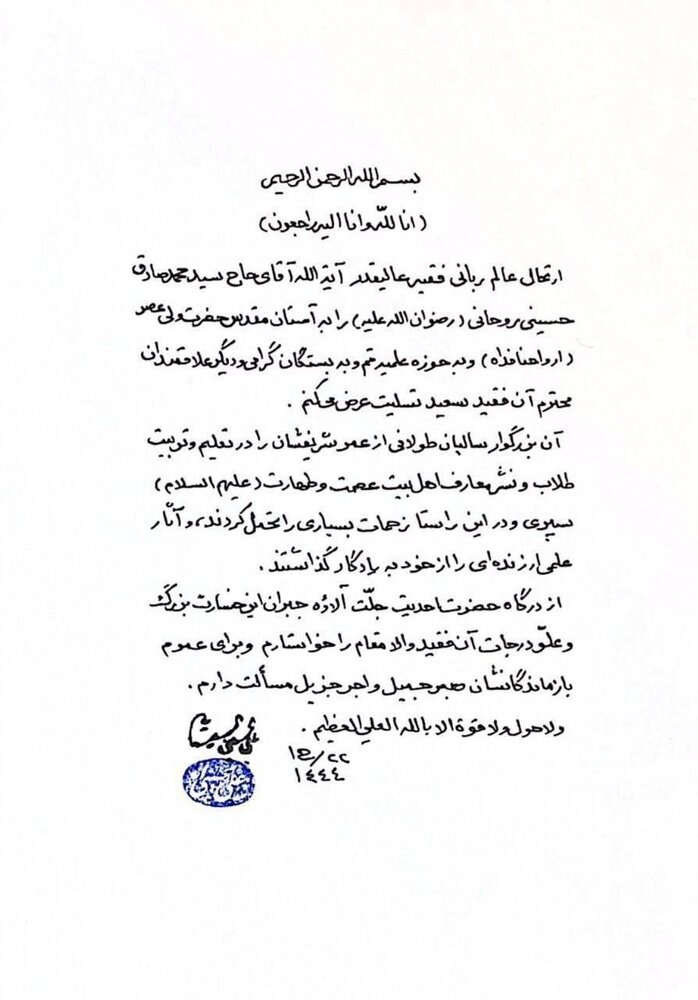 بسم الله الرحمن الرحیم
(انا لله وانا الیه راجعون)
ارتحال عالم ربانی فقیه عالیقدر آیة الله آقای حاج سید محمد صادق
حسینی روحانی (رضوان الله علیه) را به آستان مقدس حضرت ولی عصر
(ارواحنا فداه) و به حوزه علمیه قم و به بستگان گرامی و دیگر علاقمندان
محترم آن فقید سعید تسلیت عرض میکنم .
آن بزرگوار سالیان طولانی از عمر شریفشان را در تعلیم و تربیت
طلاب و نشر معارف اهل بیت عصمت و طهارت (علیهم السلام)
سپری و در این راستا زحمات بسیاری را تحمل کردند، و آثار
علمی ارزنده ای را از خود به یادگار گذاشتند .
از درگاه حضرت احدیت جلّت آلاؤه جبران این خسارت بزرگ
و علّو درجات آن فقید والا مقام را خواستارم و برای عموم
بازماندگانشان صبر جمیل و اجر جزیل مسألت دارم .
ولا حول ولا قوة الا بالله العلی العظیم .
علی الحسینی السیستانی
۲۲/ج۱
۱٤٤٤